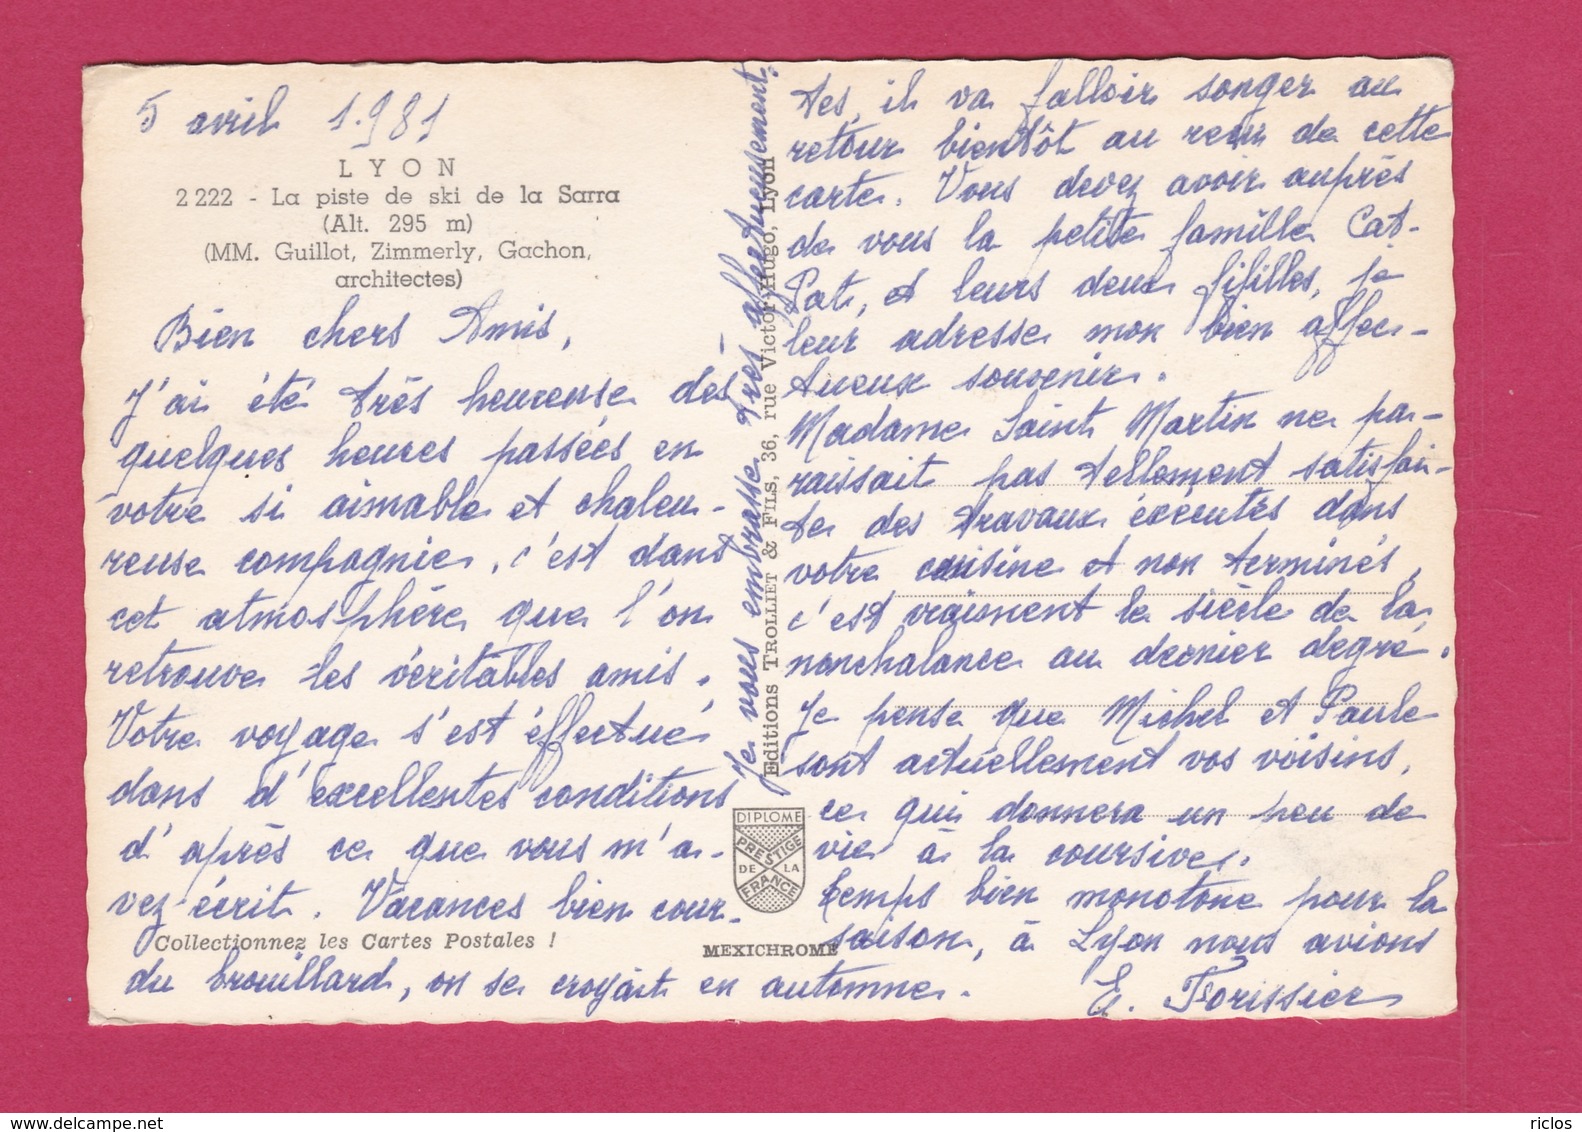 5 avril 1.981
LYON
2 222 - La piste de ski de la Sarra
(Alt. 295 m)
(MM. Guillot, Zimmerly, Gachon,
architectes)
Bien chers Amis,
J'ai été très heureuse des
quelques heures passées en
votre si aimable et chaleu-
reuse compagnie, c'est dans
cet atmosphère que l'on
retrouve les véritables amis.
Votre voyage s'est éffectué
dans d'excellentes conditions
d'après ce que vous m'a-
vez écrit. Vacances bien cour-
Collectionnez les Cartes Postales !
tes, il va falloir songer au
retour bientôt au reçu de cette
carte. Vous devez avoir auprès
de vous la petite famille Cat-
Pat, et leurs deux fifilles, je
leur adresse mon bien affec-
tueux souvenir.
Madame Saint Martin ne pa-
raissait pas tellement satisfai-
te des travaux éxécutés dans
votre cuisine et non terminés,
c'est vraiment le siècle de la
nonchalance au dernier degré.
Je pense que Michel et Paule
sont actuellement vos voisins,
ce qui donnera un peu de
vie à la coursive.
temps bien monotone pour la
saison, à Lyon nous avions
du brouillard, on se croyait en automne.
E. Forissier
Je vous embrasse très affectueusement.
Editions TROLLIET & FILS, 36, rue Victor-Hugo, Lyon
DIPLOME
PRESTIGE
DE LA
FRANCE
MEXICHROME
riclos